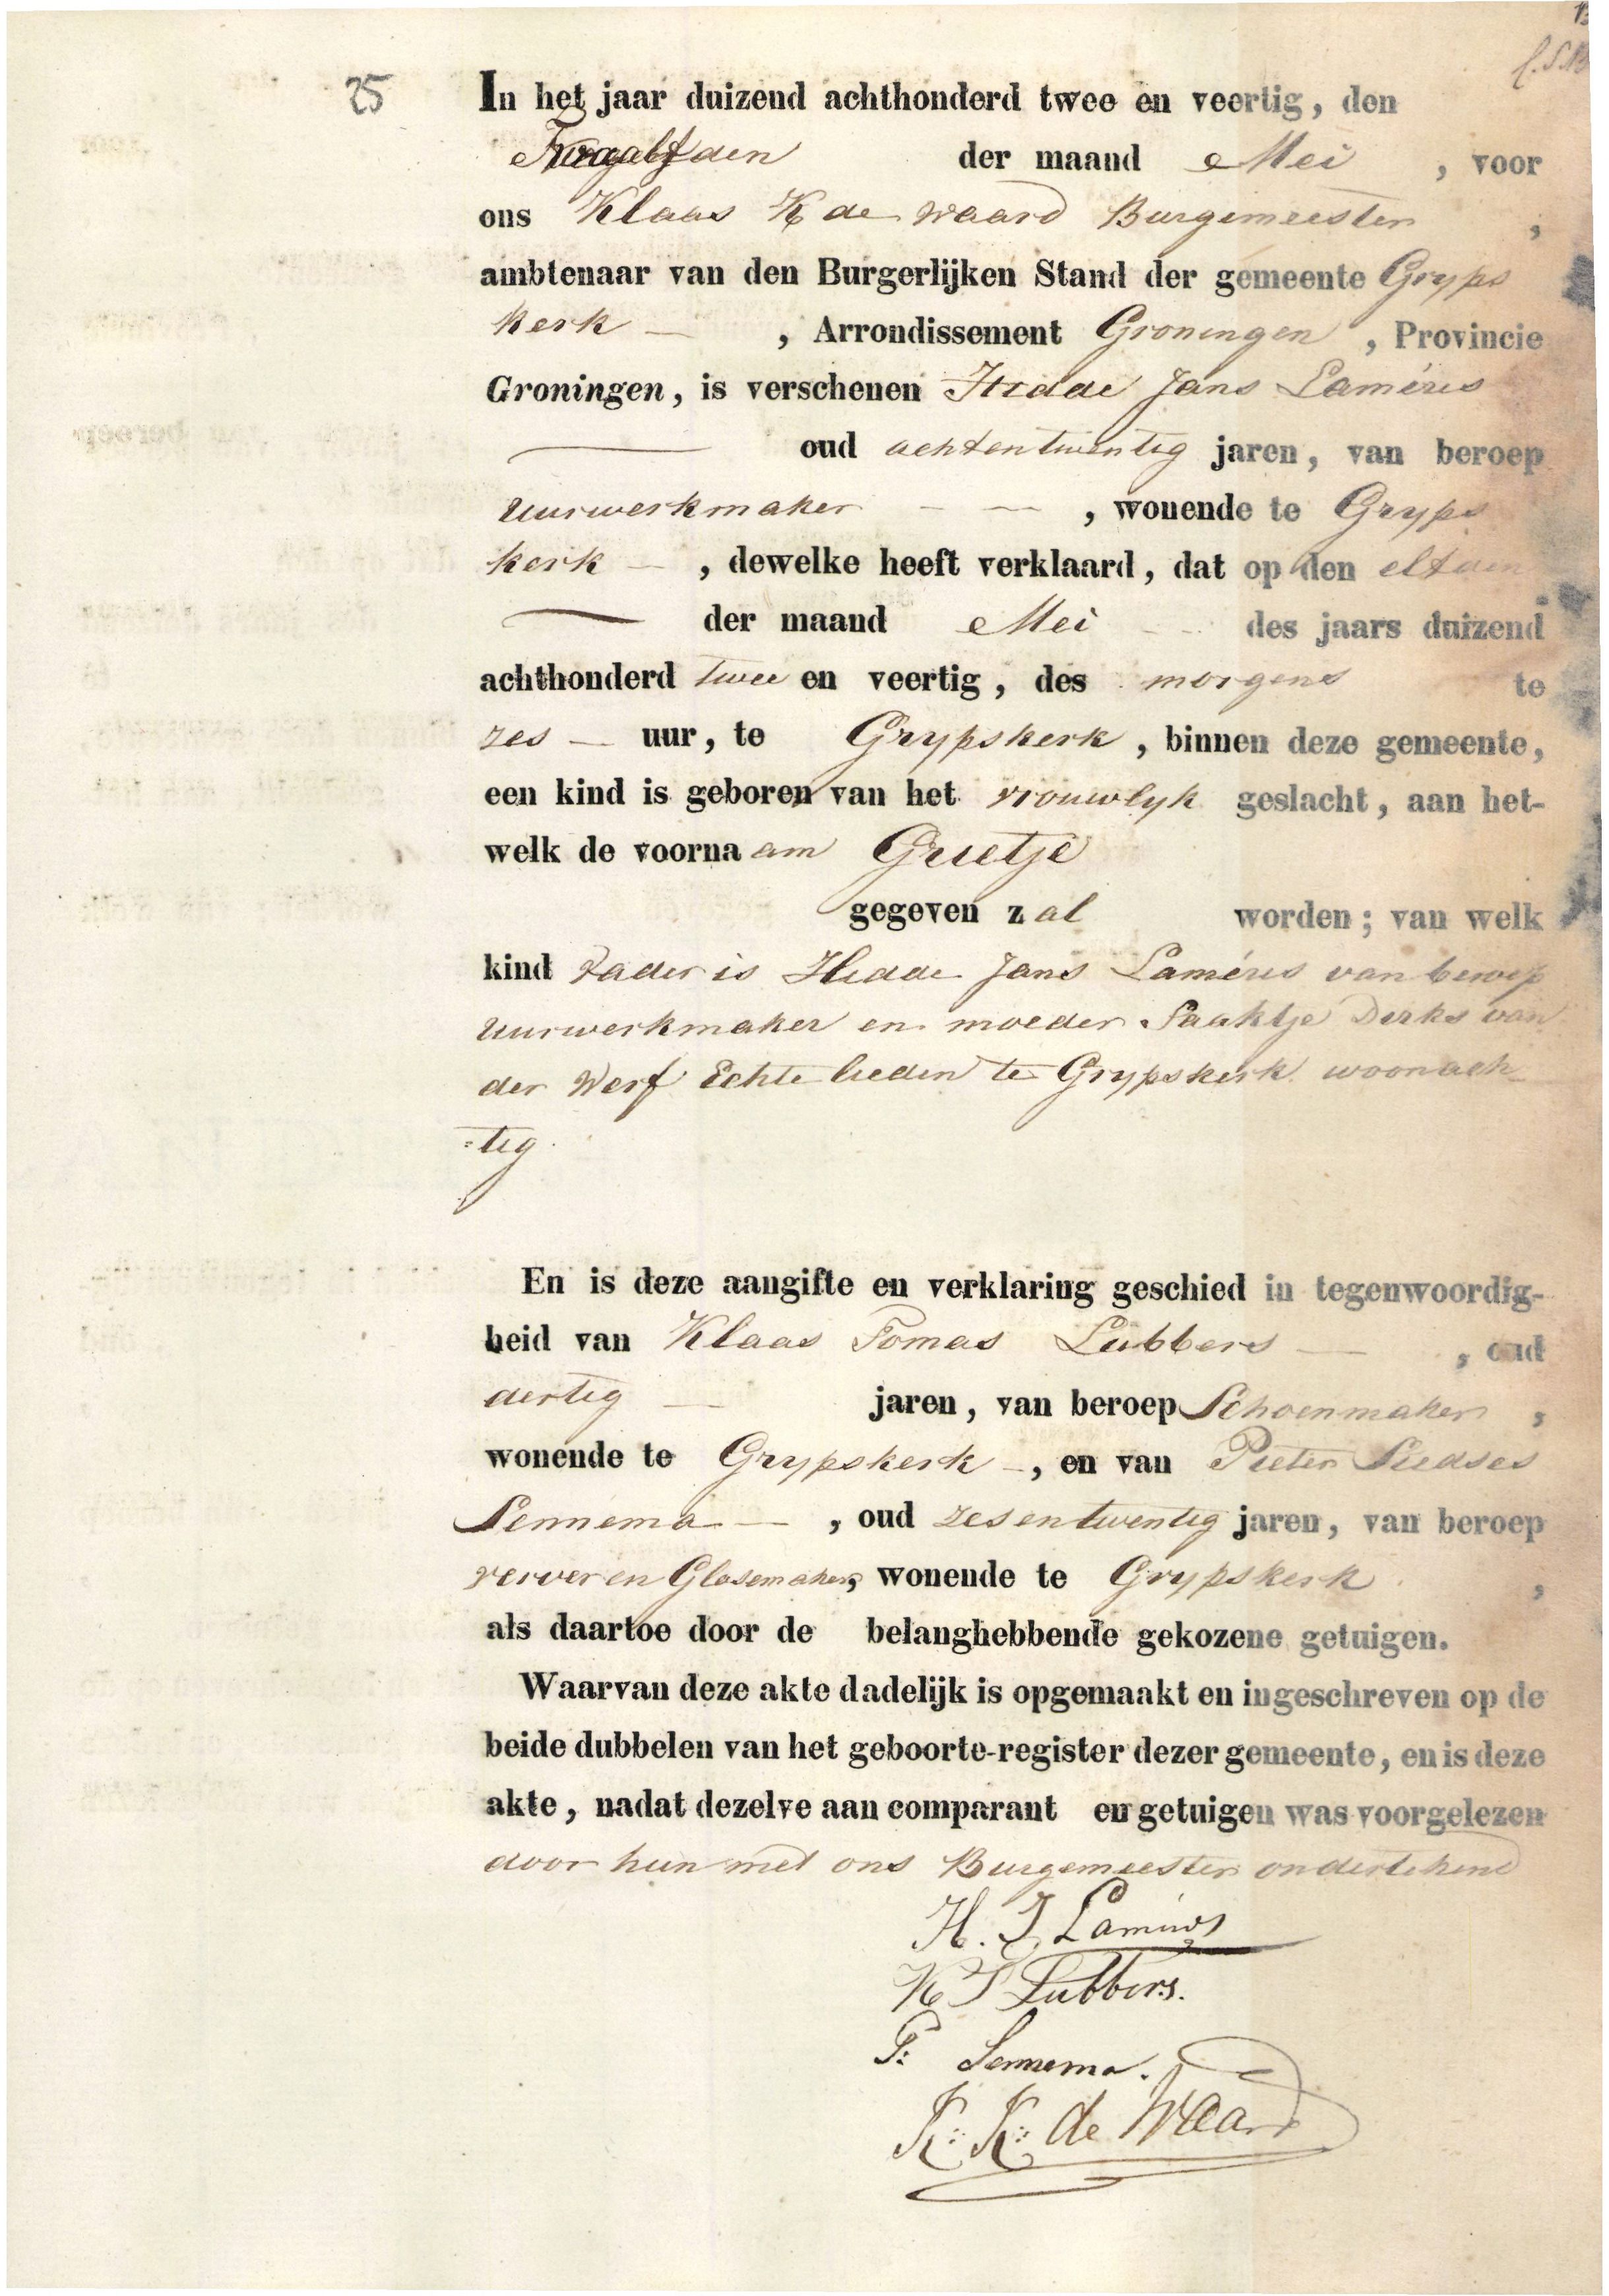 25
In het jaar duizend achthonderd twee en veertig, den
Twaalfden der maand Mei , voor
ons Klaas K de Waard Burgemeester ,
ambtenaar van den Burgerlijken Stand der gemeente Gryps
kerk — , Arrondissement Groningen , Provincie
Groningen, is verschenen Hidde Jans Laméris
— oud achtentwentig jaren, van beroep
Uurwerkmaker — — , wonende te Gryps
kerk — , dewelke heeft verklaard, dat op den elfden
— der maand Mei — des jaars duizend
achthonderd twee en veertig, des morgens te
zes — uur, te Grypskerk , binnen deze gemeente,
een kind is geboren van het vrouwlyk geslacht, aan het-
welk de voornaam Grietje
gegeven zal worden; van welk
kind vader is Hidde Jans Laméris van beroep
Uurwerkmaker en moeder Saaktje Derks van
der Werf Echte lieden te Grypskerk woonach
=tig.
En is deze aangifte en verklaring geschied in tegenwoordig-
heid van Klaas Tomas Lubbers — , oud
dertig — jaren, van beroep Schoenmaker ,
wonende te Grypskerk —, en van Pieter Siedses
Sennema — , oud zesentwentig jaren, van beroep
verver en Glasemaker, wonende te Grypskerk ,
als daartoe door de belanghebbende gekozene getuigen.
Waarvan deze akte dadelijk is opgemaakt en ingeschreven op de
beide dubbelen van het geboorte-register dezer gemeente, en is deze
akte, nadat dezelve aan comparant en getuigen was voorgelezen
door hun met ons Burgemeester ondertekend
H. J. Laméris
K T Lubbers.
P: Sennema.
K: K: de Waard